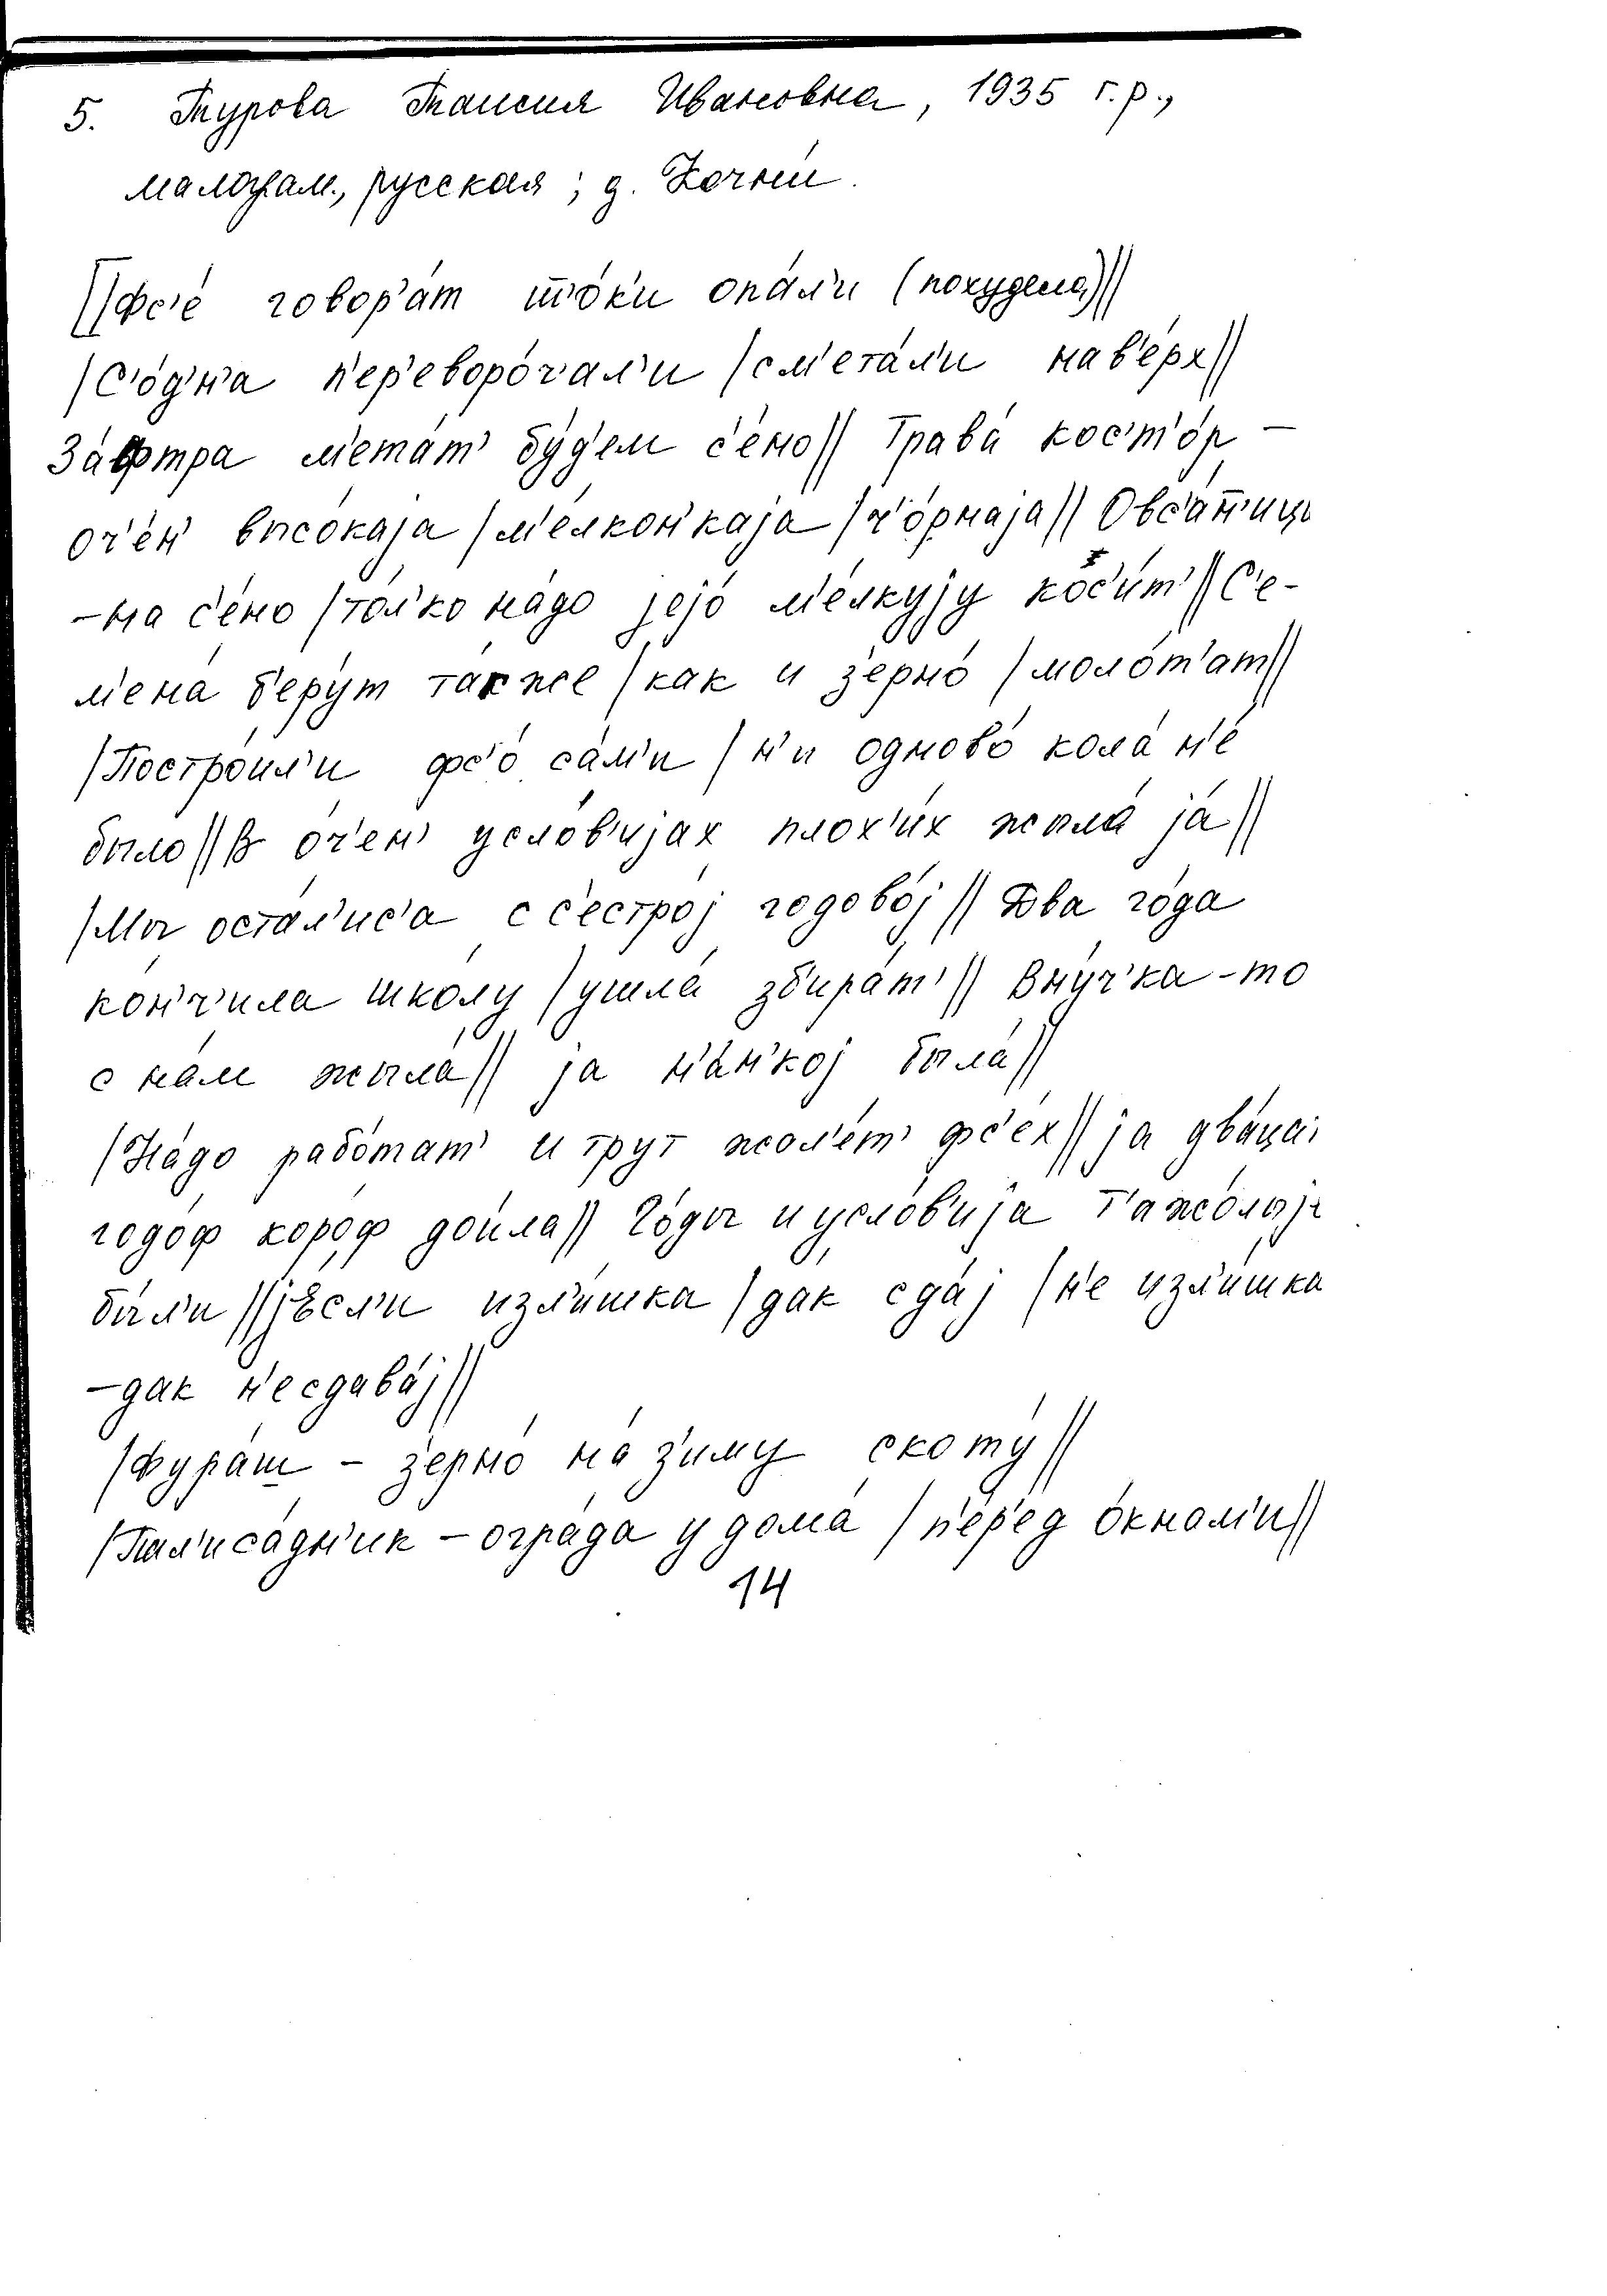 5. Турова Таисия Ивановна, 1935 г.р.,
малограм., русская; д. Кочни.
[/фс'е́ говор'а́т што́к'и опа́л'и (похудела)//
/С'о́дн'а п'ер'еворо́ч'ал'и /см'ета́л'и нав'е́рх//
За́фтра м'ета́т' бу́д'ем с'е́но// Трава́ кост'о́р –
оч'е́н' висо́каjа /м'е́лкон'каjа /ч'о́рнаjа// Овс'а́н'ицы
–на с'е́но /то́л'ко на́до jejо́ м'е́лкуjу кос'и́т'// С'е-
м'ена́ б'еру́т та́кже /как и з'ерно́ /моло́т'ат//
/Постро́ил'и фс'о са́м'и /н'и одново́ кола́ н'е́
было//В о́ч'ен' усло́в'иjах плох'и́х жыла́ jа́//
/Мы оста́л'ис'а с с'естро́j годово́j// Два го́да
ко́нч'ила школу /ушла́ зб'ира́т'// Вну́ч'ка-то
с нам жыла́// jа н'а́н'коj была́//
/На́до рабо́тат' и трут жол'е́т' фс'е́х// jа два́цат'
годо́ф коро́ф дои́ла// Го́ды и усло́в'иjа т'ажо́лыjе
бы́л'и //jе́сл'и изл'и́шка /дак сда́j /н'е изл'и́шка
–дак н'есдава́j//
/Фура́ш – з'ерно́ на́ з'иму скоту́//
/Пал'иса́дн'ик – огра́да у до́ма /п'е́р'ед о́кнам'и//
14